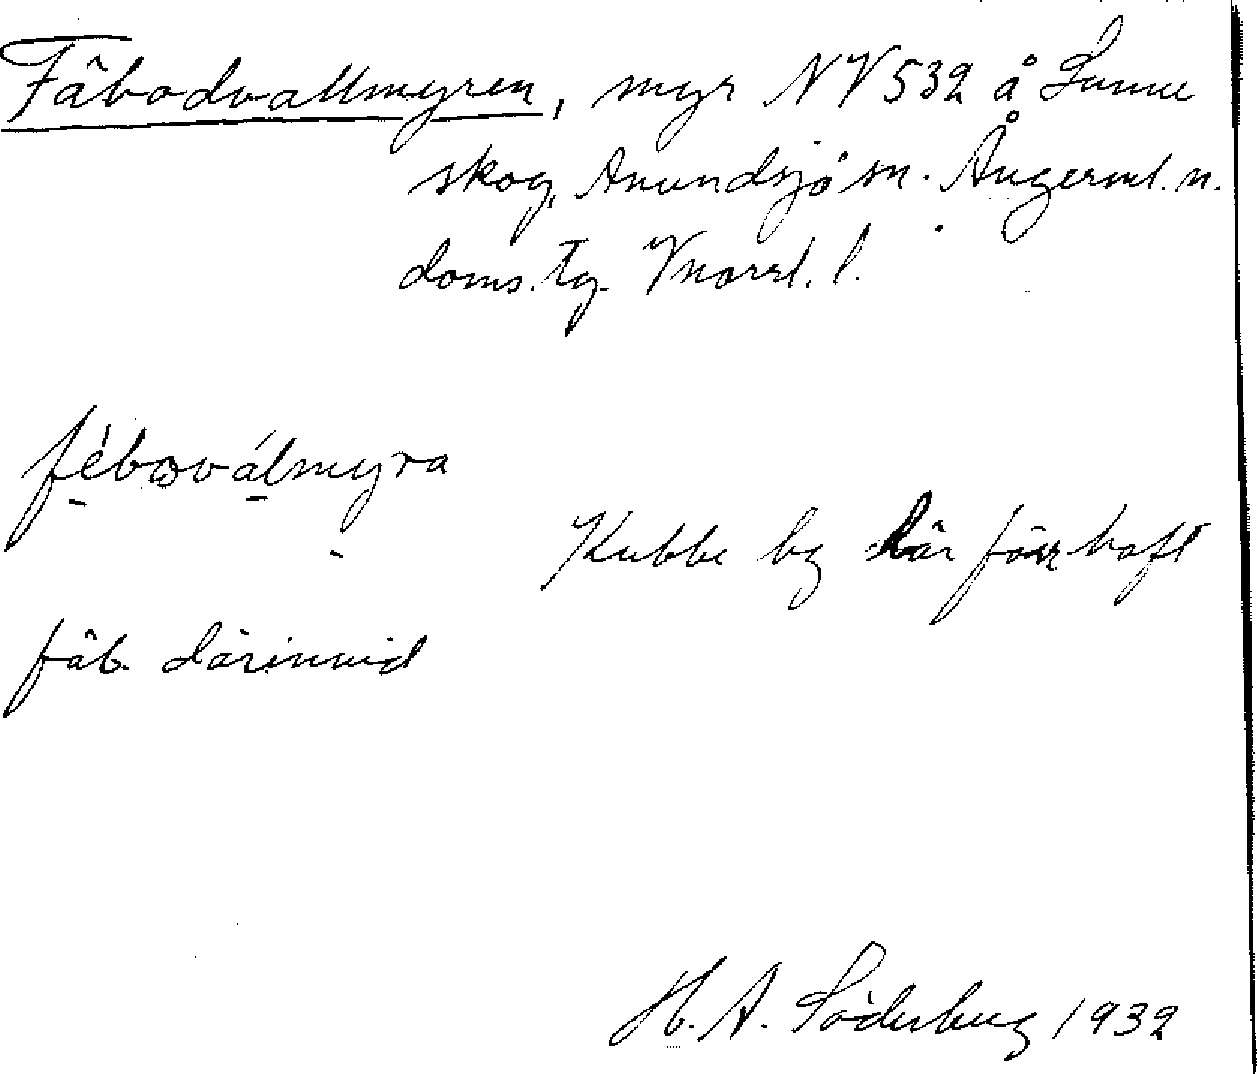 Fäbodvallmyren, myr NV 532 å Sunne
skog, Anundsjö sn. Ångerml. n.
doms. tg. Vnorrl. l.
féboválmyra
Kubbe by här förr haft
fäb. därinvid
H. A. Söderberg 1932